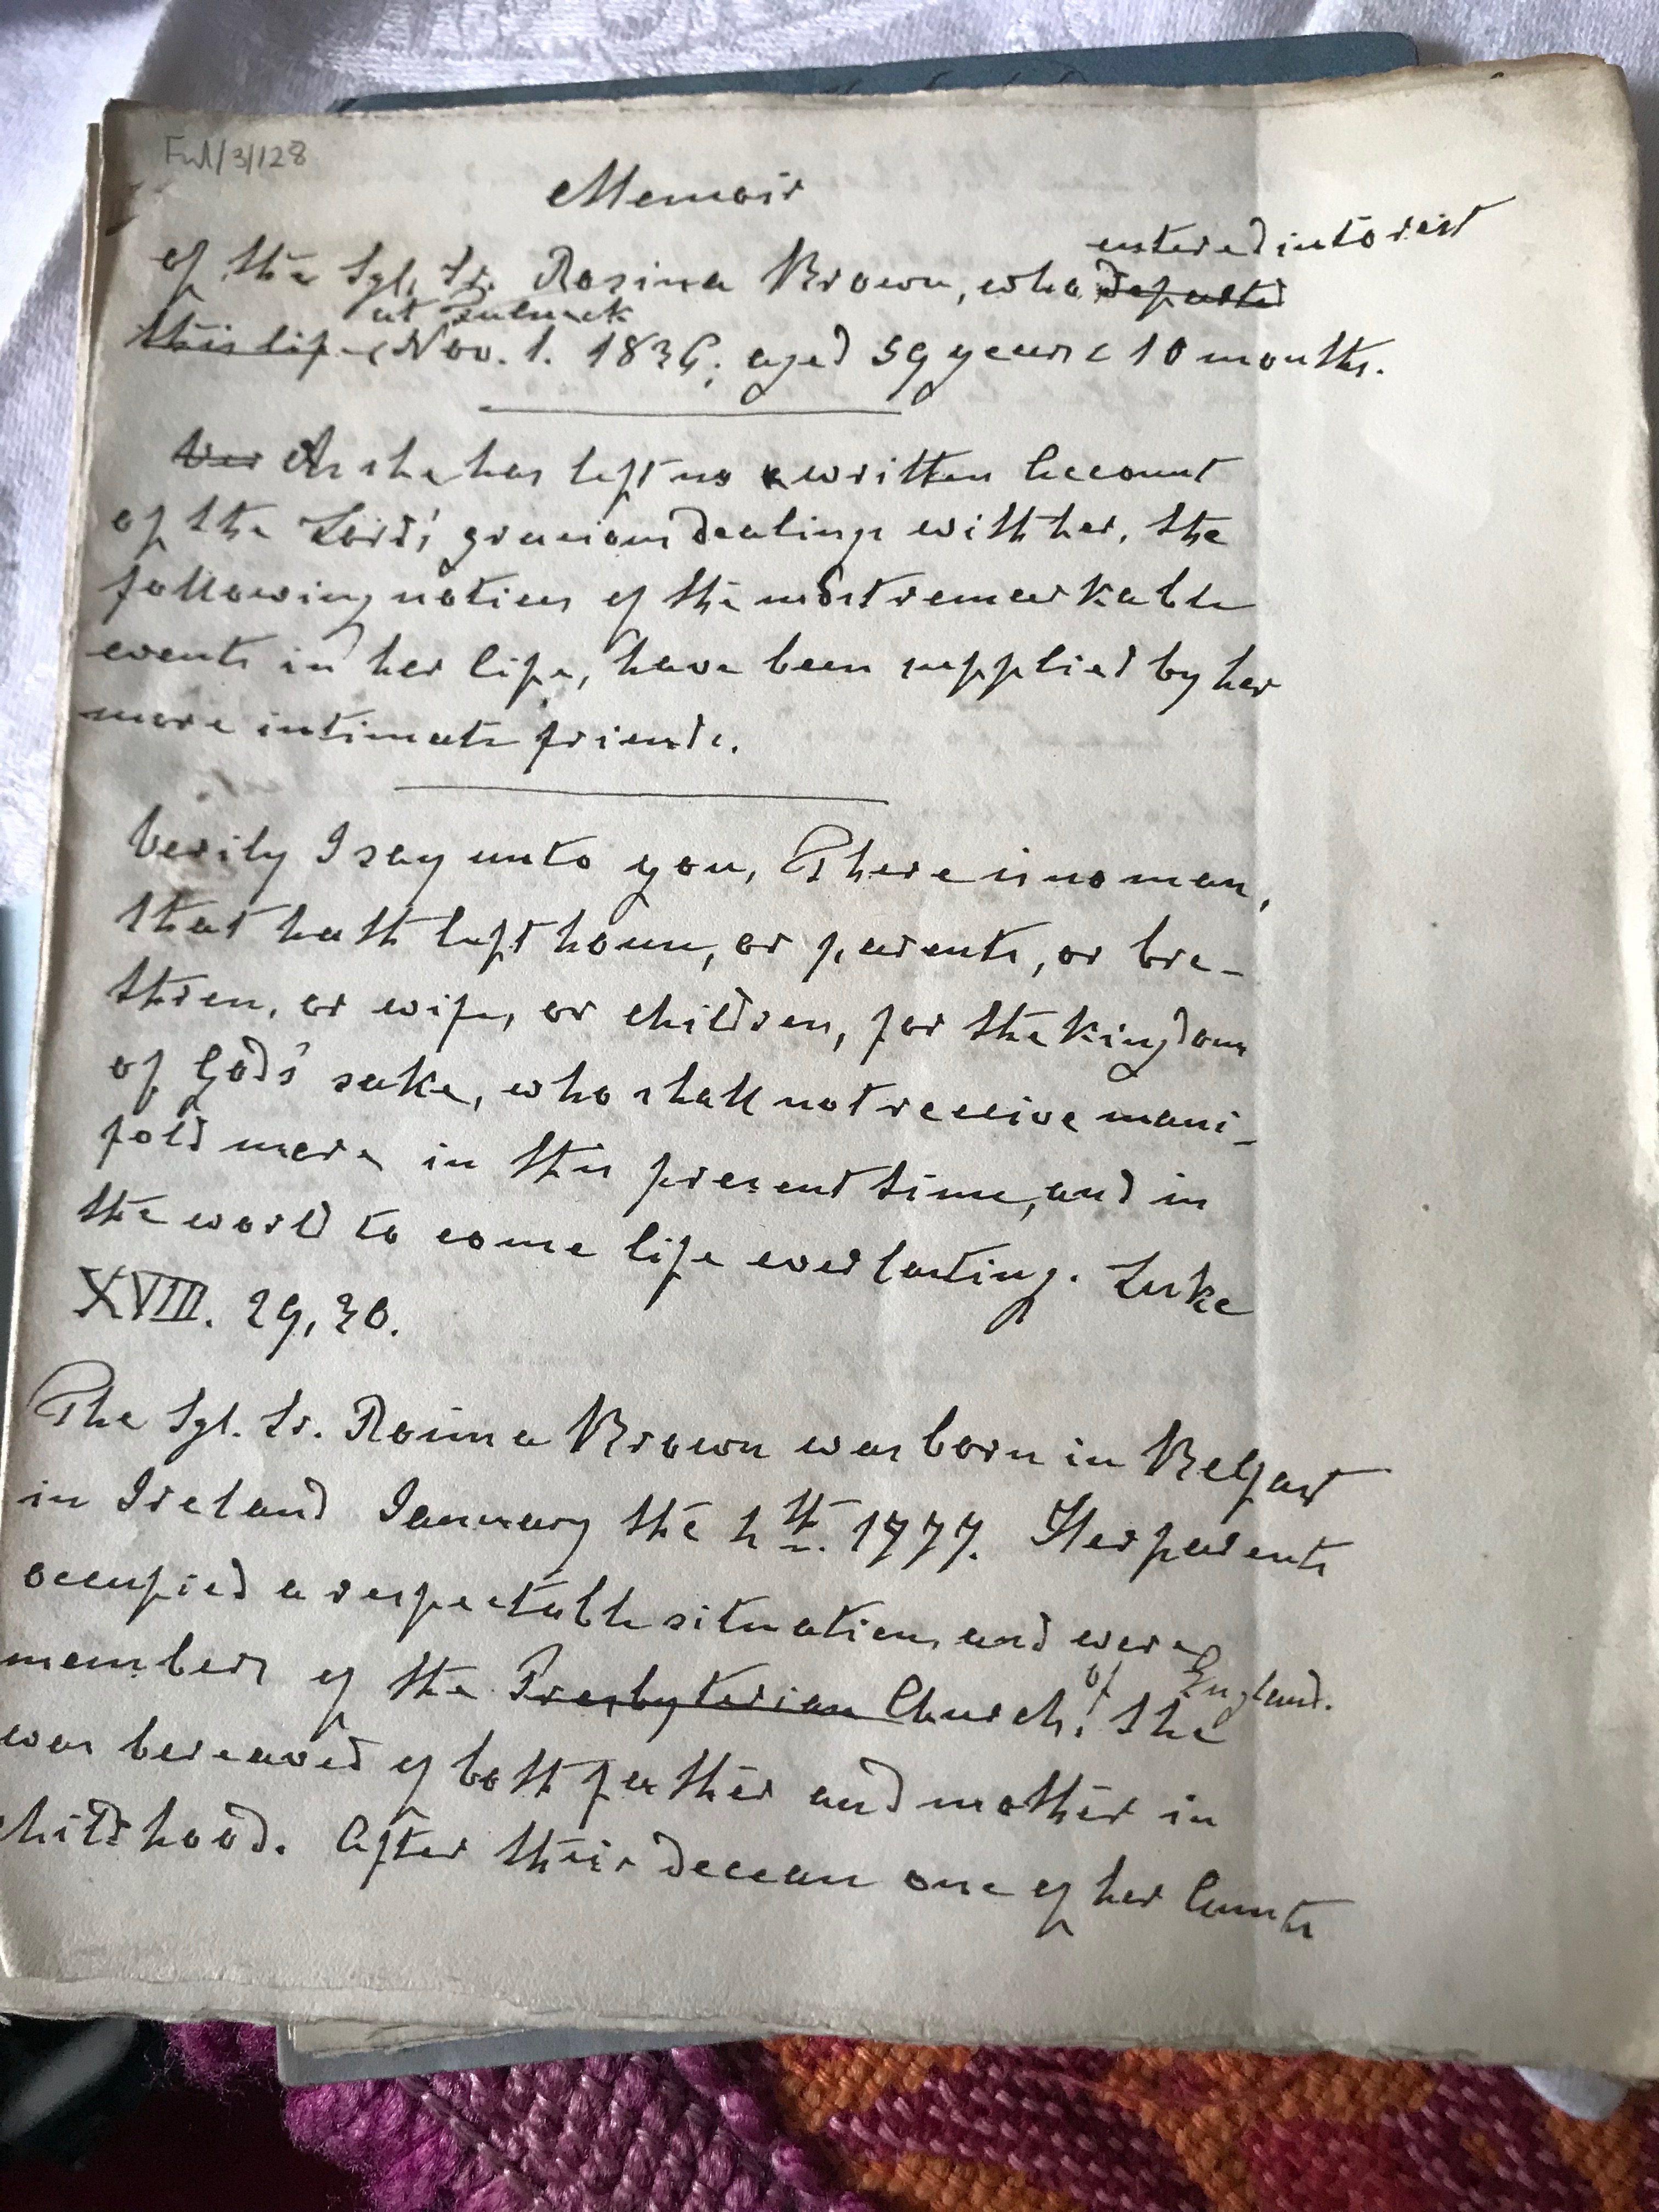 Ful/3/128
Memoir
entered into rest
of the Sgl. Sr. Rosina Brown, who departed
at Fulneck
this life Nov. 1. 1836; aged 59 years & 10 months.
As she has left no written Account
of the Lord's gracious dealings with her, the
following notices of the most remarkable
events in her life, have been supplied by her
more intimate friends.
Verily I say unto you, There is no man,
that hath left house, or parents, or bre-
thren, or wife, or children, for the Kingdom
of God's sake, who shall not receive mani-
fold more in this present time, and in
the world to come life everlasting. Luke
XVIII. 29, 30.
The Sgl. Sr. Rosina Brown was born in Belfast
in Ireland January the th. 1777. Her parents
occupied a respectable situation, and were
of England.
members of the Presbyterian Church. She
was bereaved of both father and mother in
childhood. After their decease one of her Aunts